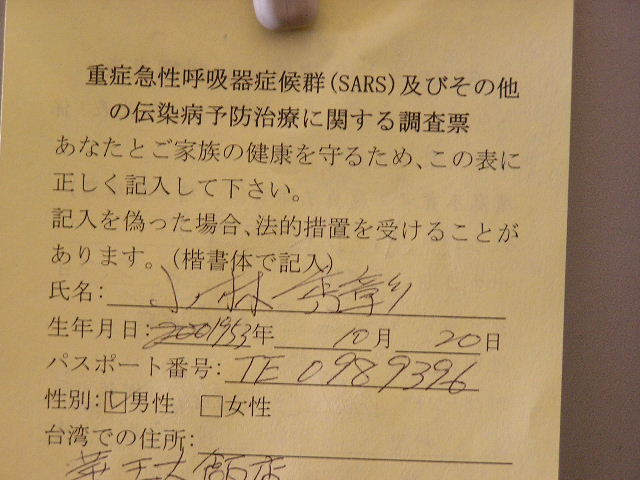 重症急性呼吸器症候群(SARS)及びその他
の伝染病予防治療に関する調査票
あなたとご家族の健康を守るため、この表に
正しく記入して下さい。
記入を偽った場合、法的措置を受けることが
あります。(楷書体で記入)
氏名: 小林 秀彰
生年月日: 1953年 10月 20日
パスポート番号: TE 0989396
性別: ☑男性 □女性
台湾での住所:
華王大飯店